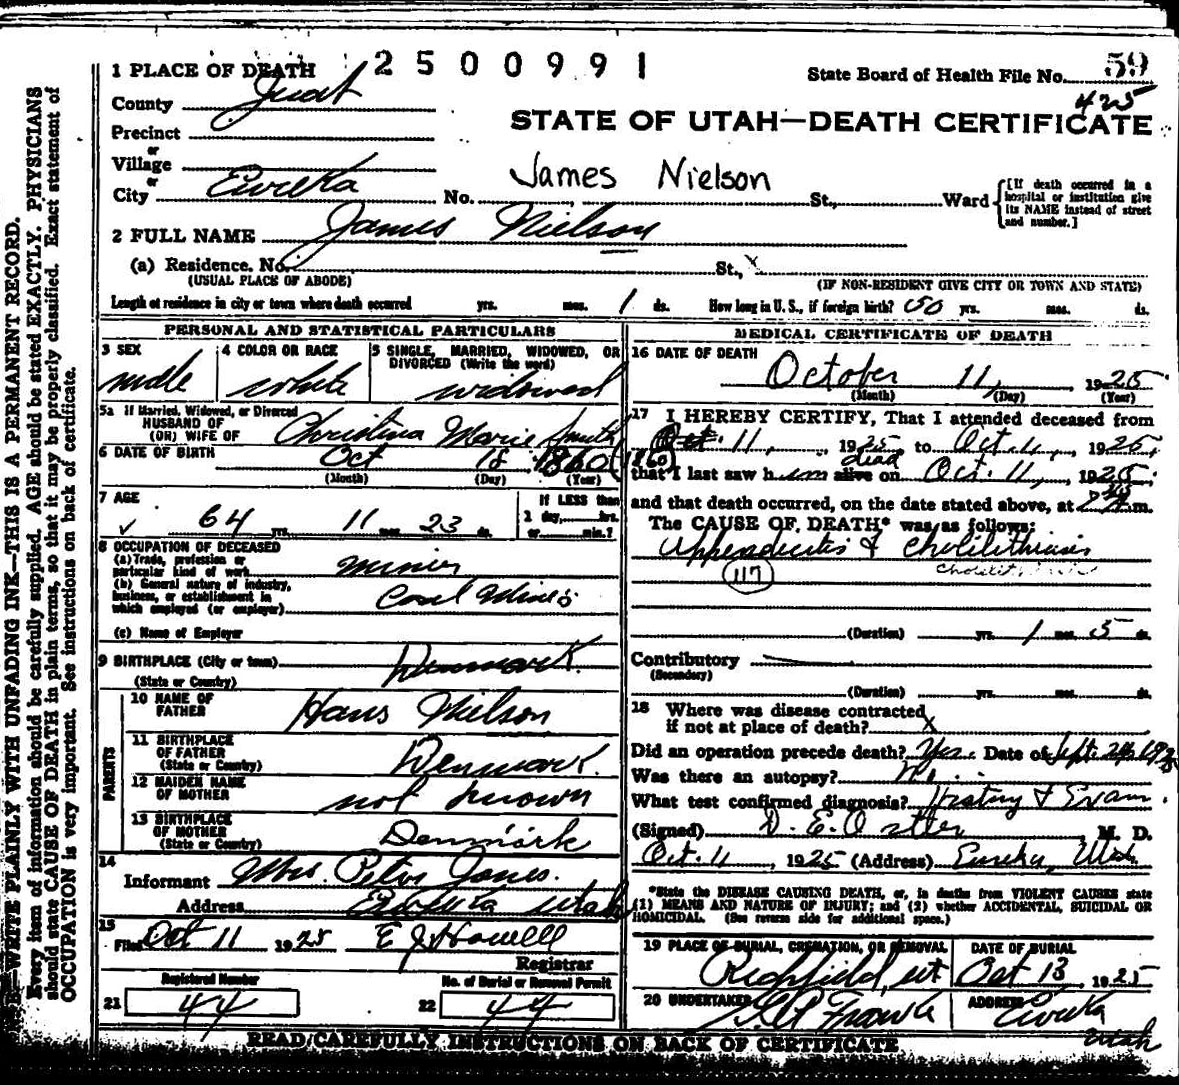 2500991
1 PLACE OF DEATH
State Board of Health File No. 59
425
County Juab
STATE OF UTAH—DEATH CERTIFICATE
Precinct
or
Village
or
City Eureka No. St., Ward
James Nielson
[If death occurred in a hospital or institution give its NAME instead of street and number.]
2 FULL NAME James Nielson
(a) Residence. No. St., x
(USUAL PLACE OF ABODE) (IF NON-RESIDENT GIVE CITY OR TOWN AND STATE)
Length of residence in city or town where death occurred yrs. mos. 1 ds. How long in U. S., if foreign birth? 50 yrs. mos. ds.
PERSONAL AND STATISTICAL PARTICULARS
3 SEX male
4 COLOR OR RACE white
5 SINGLE, MARRIED, WIDOWED, OR DIVORCED (Write the word) widowed
5a If Married, Widowed, or Divorced
HUSBAND OF
(OR) WIFE OF Christina Marie Smith
6 DATE OF BIRTH Oct 18 1860 (1860)
(Month) (Day) (Year)
7 AGE 64 yrs. 11 mos. 23 ds.
If LESS than
1 day, hrs.
or min.?
8 OCCUPATION OF DECEASED
(a) Trade, profession or
particular kind of work miner
(b) General nature of industry,
business, or establishment in
which employed (or employer) Coal Mines
(c) Name of Employer
9 BIRTHPLACE (City or town) Denmark
(State or Country)
PARENTS
10 NAME OF FATHER Hans Nielson
11 BIRTHPLACE OF FATHER (State or Country) Denmark.
12 MAIDEN NAME OF MOTHER not known
13 BIRTHPLACE OF MOTHER (State or Country) Denmark
14 Informant Mrs. Peter Jones.
Address Eureka Utah
15 Filed Oct 11 1925 E J Howell
Registrar
Registered Number
21 44
No. of Burial or Removal Permit
22 44
MEDICAL CERTIFICATE OF DEATH
16 DATE OF DEATH
October 11, 1925
(Month) (Day) (Year)
17 I HEREBY CERTIFY, That I attended deceased from
Oct. 11, 1925 to Oct. 11, 1925,
that I last saw him alive dead on Oct. 11, 1925,
and that death occurred, on the date stated above, at m.
The CAUSE OF DEATH* was as follows:
Appendicitis & Cholilithiasis
(117)
(Duration) yrs. 1 mos. 5 ds.
Contributory
(Secondary)
(Duration) yrs. mos. ds.
18 Where was disease contracted
if not at place of death? X
Did an operation precede death? Yes. Date of Sept. 1925
Was there an autopsy? No.
What test confirmed diagnosis? History & Exam.
(Signed) M. D.
Oct. 11, 1925 (Address) Eureka, Utah
*State the DISEASE CAUSING DEATH, or, in deaths from VIOLENT CAUSES state
(1) MEANS AND NATURE OF INJURY; and (2) whether ACCIDENTAL, SUICIDAL OR
HOMICIDAL. (See reverse side for additional space.)
19 PLACE OF BURIAL, CREMATION, OR REMOVAL
Richfield, Ut
DATE OF BURIAL
Oct 13, 1925
20 UNDERTAKER
ADDRESS Eureka
Utah
READ CAREFULLY INSTRUCTIONS ON BACK OF CERTIFICATE
WRITE PLAINLY WITH UNFADING INK—THIS IS A PERMANENT RECORD.
Every item of information should be carefully supplied. AGE should be stated EXACTLY. PHYSICIANS
should state CAUSE OF DEATH in plain terms, so that it may be properly classified. Exact statement of
OCCUPATION is very important. See instructions on back of certificate.